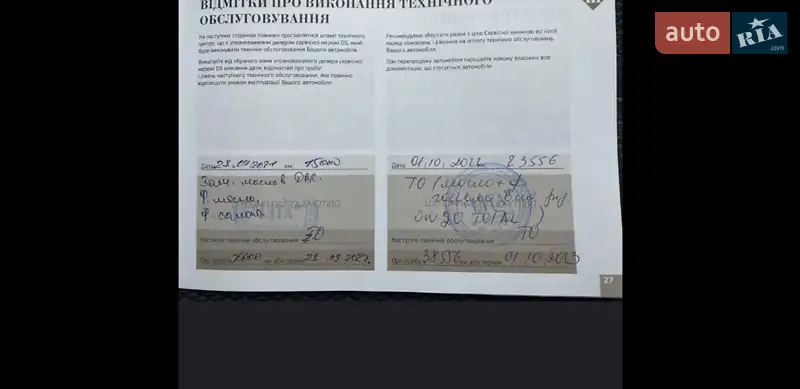 ВІДМІТКИ ПРО ВИКОНАННЯ ТЕХНІЧНОГО
ОБСЛУГОВУВАННЯ
На наступних сторінках повинні проставлятися штампи технічного
центру, що є уповноваженим дилером сервісної мережі DS, який
буде виконувати технічне обслуговування Вашого автомобіля.
Вимагайте від обраного вами уповноваженого дилера сервісної
мережі DS внесення дати, відомостей про пробіг
і рівень наступного технічного обслуговування, яке повинно
відповідати умовам експлуатації Вашого автомобіля.
Рекомендуємо зберігати разом з цією Сервісною книжкою всі копії
наряд-замовлень і рахунків на оплату технічних обслуговувань
Вашого автомобіля.
При перепродажу автомобіля передайте новому власнику всю
документацію, що стосується автомобіля.
Дата 28.09.2021 км 15000
Зам. масло в ДВС.
Ф. масло
Ф. салона
Наступне технічне обслуговування ТО
При пробігу км або термін
Дата 01.10.2022 23556
ТО (масло + ф
0W20 TOTAL)
Наступне технічне обслуговування ТО
При пробігу 38556 км або термін 01.10.2023
27
auto RIA
.com